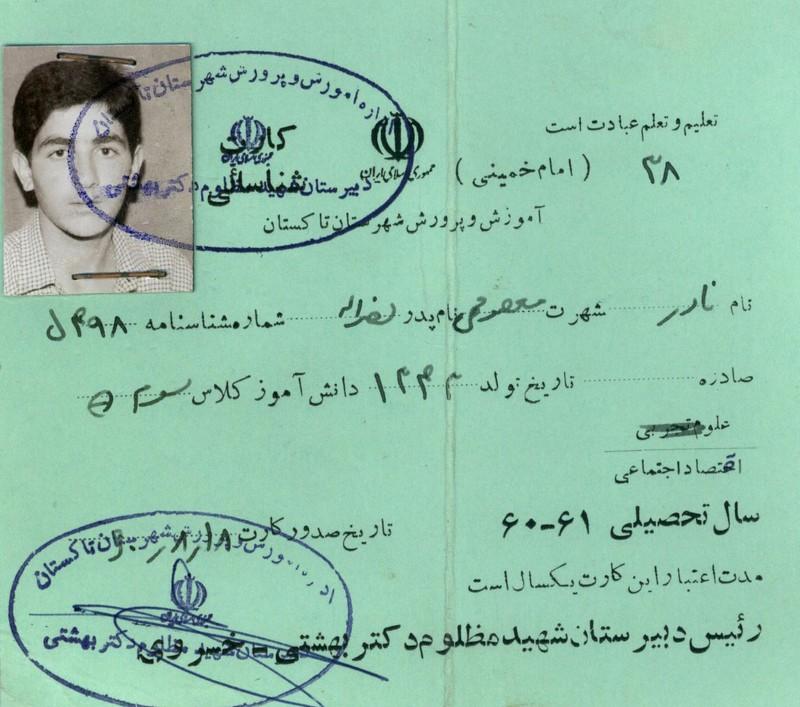 تعلیم و تعلم عبادت است
( امام خمینی ) ۳۸
جمهوری اسلامی ایران
کارت
شناسائی
اداره آموزش و پرورش شهرستان تاکستان
دبیرستان شهید مظلوم دکتر بهشتی
آموزش و پرورش شهرستان تاکستان
نام نادر شهرت معصومی نام پدر نصراله شماره شناسنامه ۴۹۸
صادره تاریخ تولد دانش آموز کلاس سوم
علوم تجربی
اقتصاد اجتماعی
سال تحصیلی ۶۱-۶۰
تاریخ صدور کارت
مدت اعتبار این کارت یکسال است
رئیس دبیرستان شهید مظلوم دکتر بهشتی - خسروانی
اداره آموزش و پرورش شهرستان تاکستان
دبیرستان شهید مظلوم دکتر بهشتی